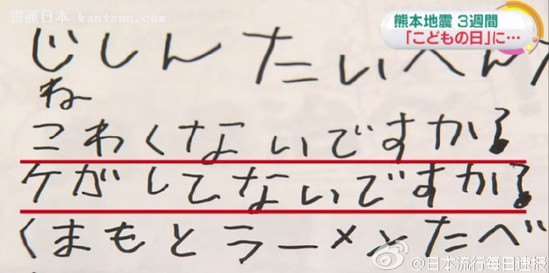 贯通日本 kantsuu.com
熊本地震 3週間
「こどもの日」に…
じしんたいへん
ね
こわくないですかる
ケガしてないですかる
くまもとラーメンたべ
@日本流行每日速报